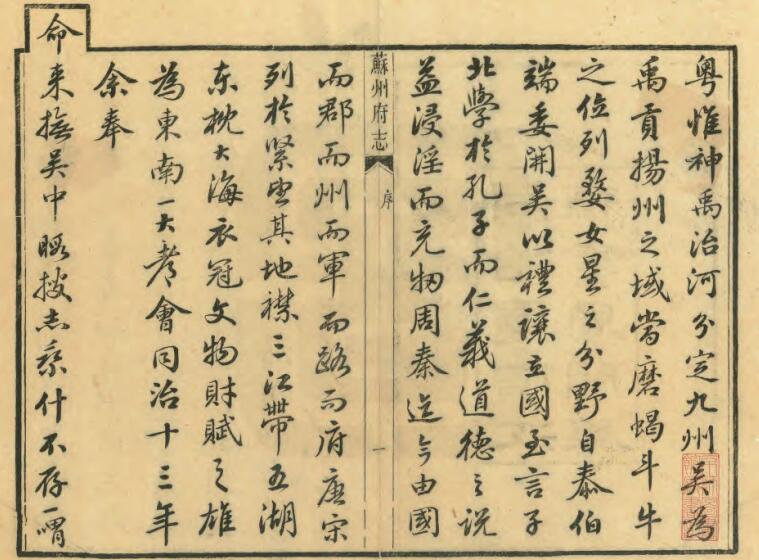 粤惟神禹治河分定九州吳為
禹貢揚州之域當磨蝎斗牛
之位列婺女星之分野自泰伯
端委開吳以禮讓立國至言子
北學於孔子而仁義道德之説
益浸淫而充牣周秦迄今由國
蘇州府志
序
一
而郡而州而軍而路而府唐宋
列於緊望其地襟三江帶五湖
東枕大海衣冠文物財賦之雄
為東南一大都會同治十三年
余奉
命來撫吳中暇披志乘什不存一喟